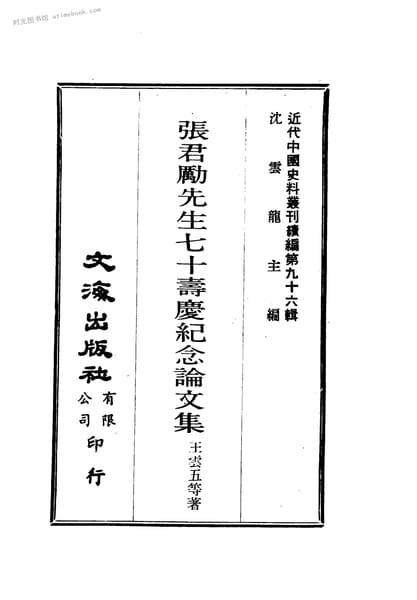 时光图书馆 - atimebook.com
近代中國史料叢刊續編第九十六輯
沈雲龍主編
張君勵先生七十壽慶紀念論文集
王雲五等著
文海出版社
有限
公司
印行